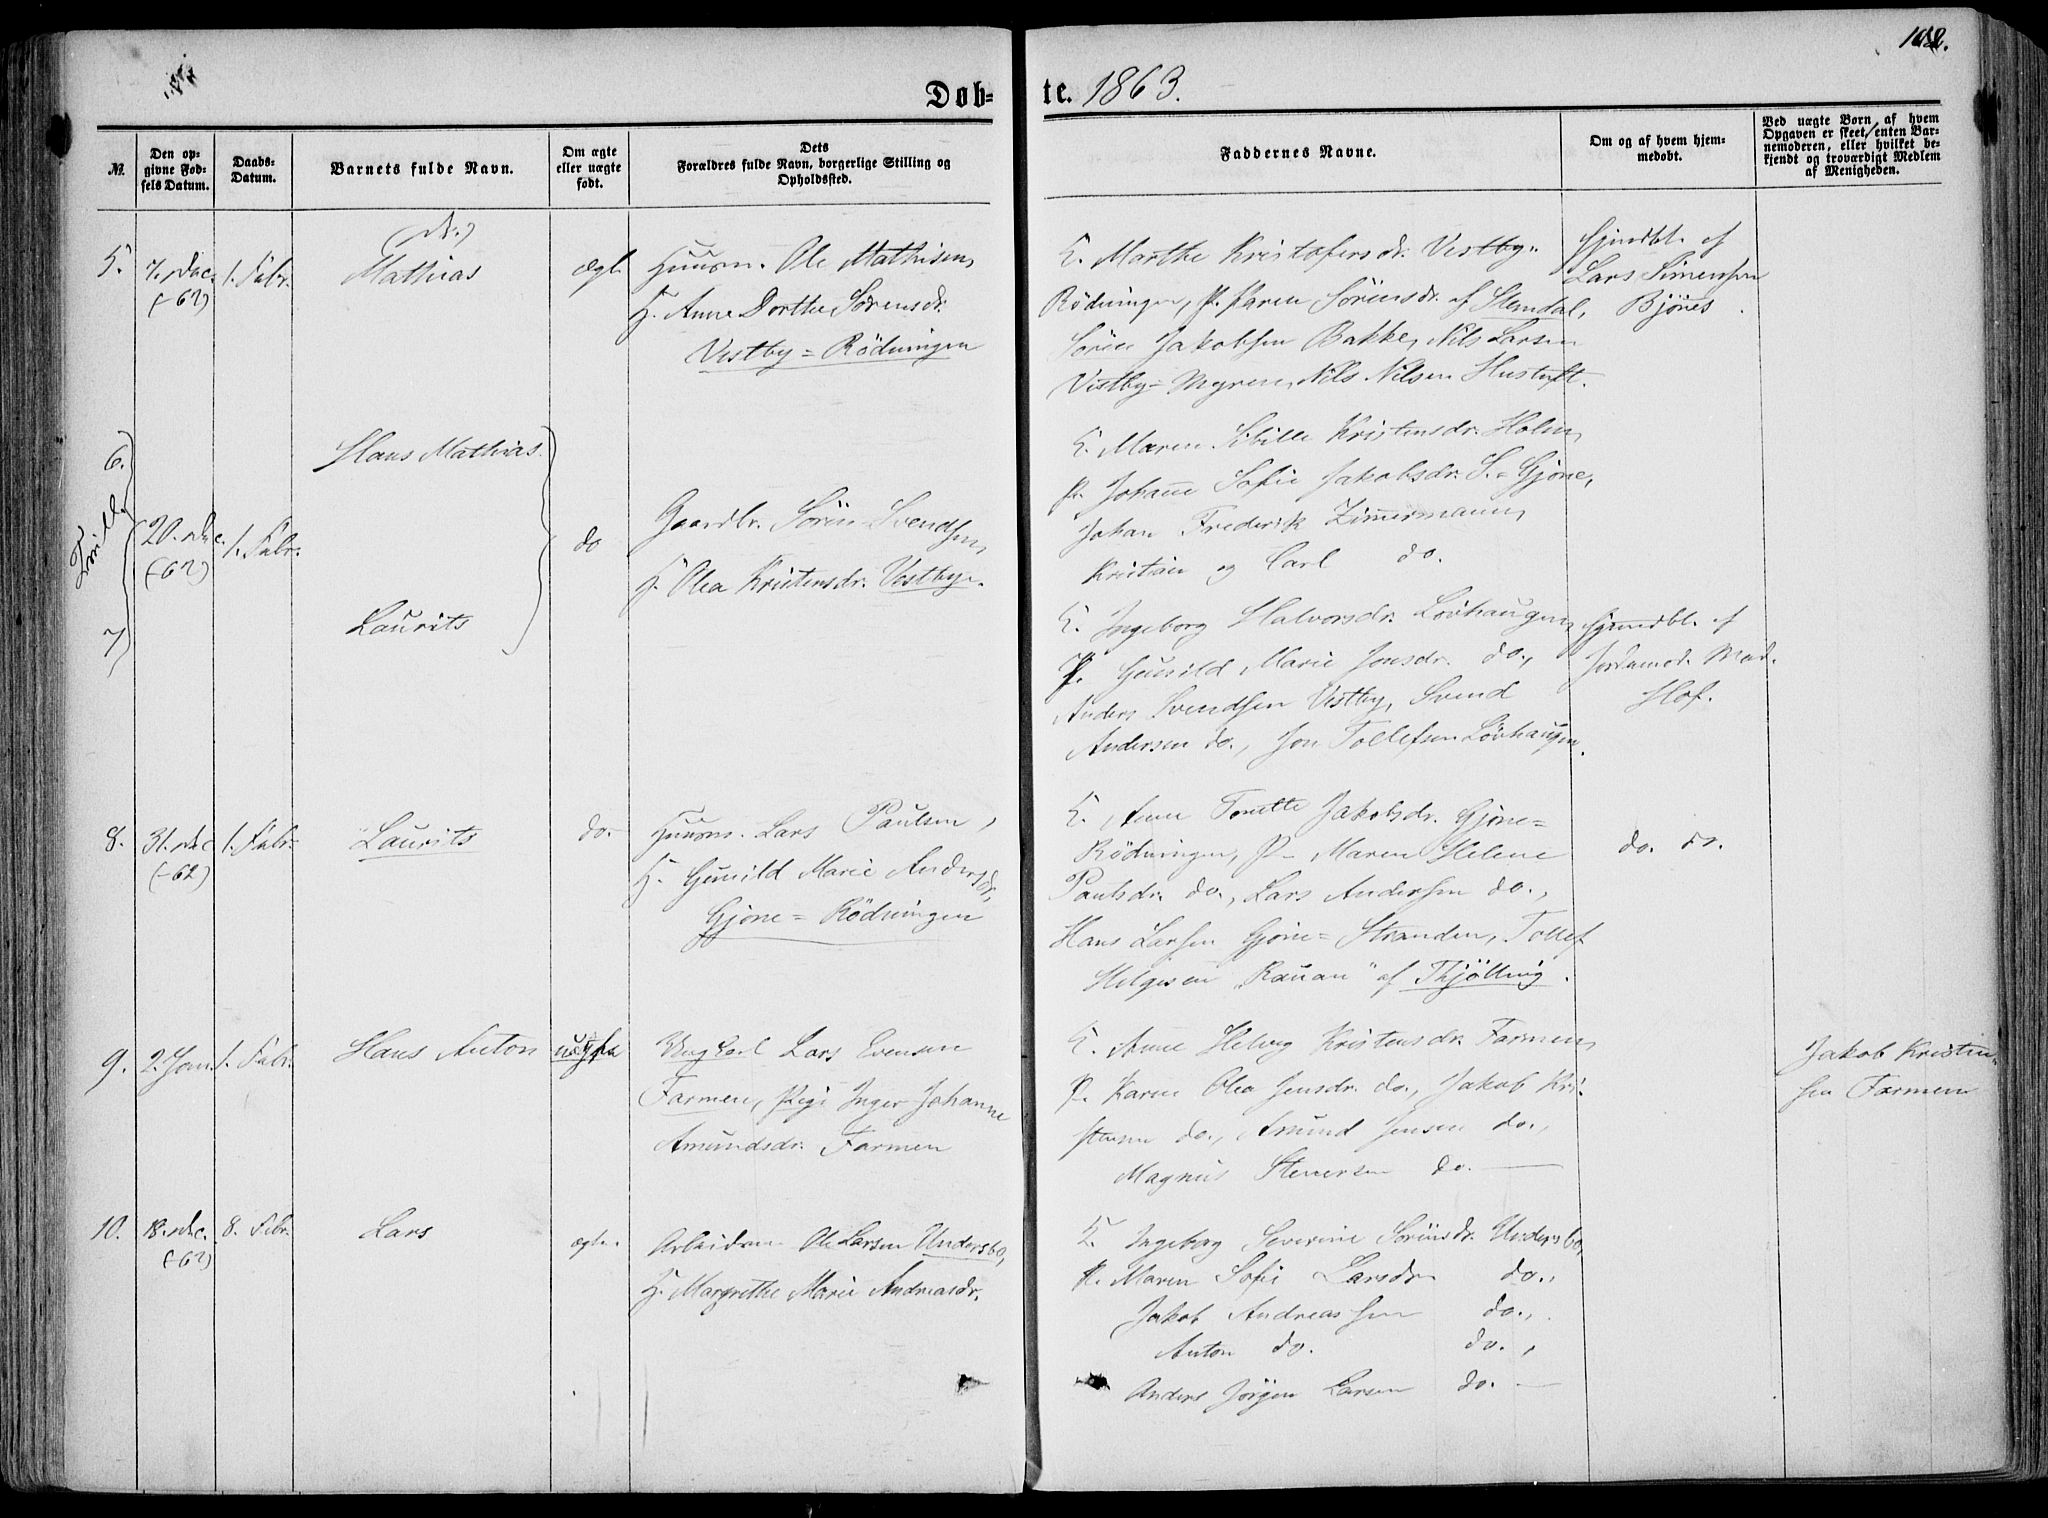 Døb-
te. 1863.
№
Den op-
givne Fød-
sels Datum.
Daabs-
Datum.
Barnets fulde Navn.
Om ægte
eller uægte
født.
Dets
Forældres fulde Navn, borgerlige Stilling og
Opholdssted.
Faddernes Navne.
Om og af hvem hjem-
medøbt.
Ved uægte Børn af hvem
Opgaven er skeet, enten Bar-
nemoderen, eller hvilket be-
kjendt og troværdigt Medlem
af Menigheden.
5.
7. Dec.
(-62)
1. Febr.
Mathias
ægte
Huusm. Ole Mathisen,
H. Anne Dorthe Sørensdr.
Vestby = Rödningen
K. Marthe Kristofersdr. Vestby-
Rödningen, P. Karen Sörensdr. af Slemdal,
Sören Jakobsen Bakke, Nils Larsen
Vestby = Myren, Nils Nilsen Hustuft.
Hjemdbt. af
Lars Simensen
Bjönes
Tvill.
6.
7
20. Dec.
(-62)
1. Febr.
Hans Mathias.
Laurits
do
Gaardbr. Sören Svendsen,
H. Olea Kristensdr. Vestby.
K. Maren Sibille Kristensdr. Holm,
P. Johanne Sofie Jakobsdr. S. Gjöne,
Johan Frederik Zimmermann,
Kristian og Carl do.
K. Ingeborg Halvorsdr. Lövhaugen,
P. Gunild Marie Jonsdr. do.,
Anders Svendsen Vestby, Svend
Andersen do., Jon Tollefsen Lövhaugen.
Hjemdbt. af
Jordemod. Mad.
Hof.
8.
31. Dec
(-62)
1. Febr.
Laurits
do.
Huusm. Lars Paulsen,
H. Gunild Marie Andersdr.
Gjöne = Rödningen
K. Anne Tonette Jakobsdr. Gjöne =
Rödningen, P. Maren Helene
Paulsdr. do., Lars Andersen do.,
Hans Larsen Gjöne = Stranden, Tollef
Helgesen "Rauan" af Thjölling.
do. do.
9.
2. Jan.
1. Febr.
Hans Anton
uægte
Ungkarl Lars Evensen
Farmen, Pige Inger Johanne
Amundsdr. Farmen
K. Anne Helvig Kristensdr. Farmen,
P. Karen Olea Jensdr. do., Jakob Kri-
stensen do., Amund Jensen do.,
Magnus Stenersen do.
Jakob Kristen-
sen Farmen
10.
18. Dec.
(-62)
8. Febr.
Lars
ægte.
Arbeidsm. Ole Larsen Undersbo,
H. Margrethe Marie Andreasdr.
K. Ingeborg Severine Sörensdr. Undersbo,
P. Maren Sofie Larsdr. do.,
Jakob Andreassen do.,
Anton do. do.,
Anders Jörgen Larsen do.